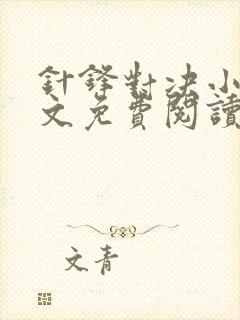 針鋒對決小
文免費閱讀
文青